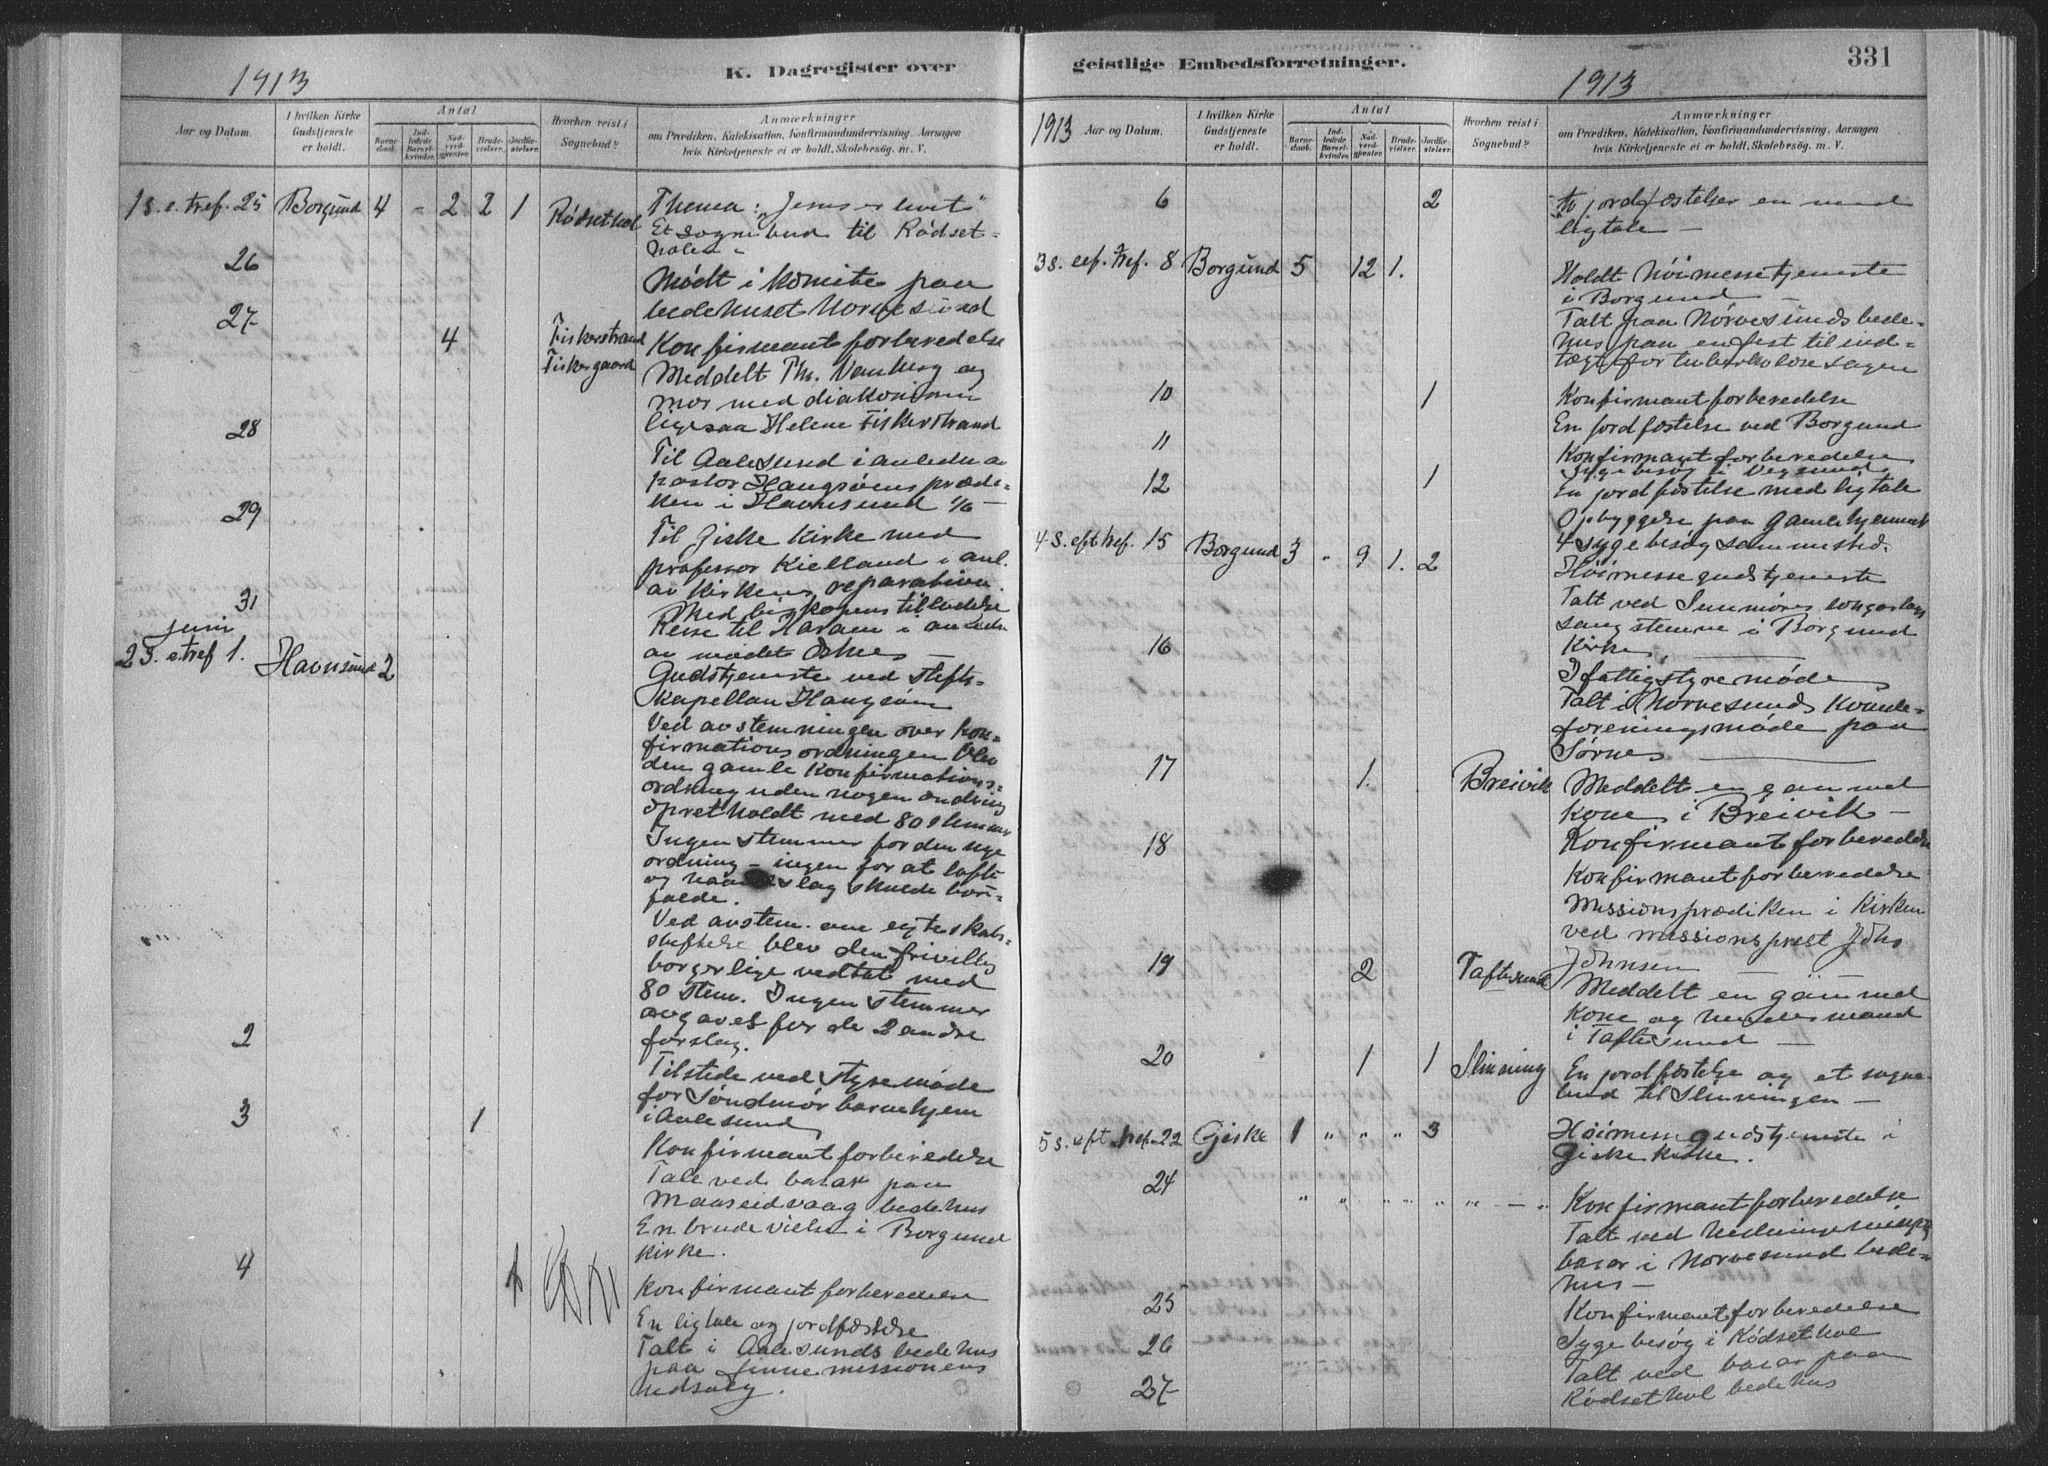 1913
K. Dagregister over
Aar og Datum.
I hvilken Kirke Gudstjeneste er holdt.
Antal
Barne-daab.
Ind-ledede Barsel-kvinder.
Nad-verd-gjæster.
Brude-vielser.
Jordfæ-stelser.
Hvorhen reist i Sognebud?
Anmærkninger
om Prædiken, Katekisation, Konfirmandundervisning. Aarsagen
hvis Kirketjeneste ei er holdt. Skolebesøg. m. V.
1 s. e. tref. 25 Borgund 4 - 2 2 1 Rødsethol Thema: "Jesus er livet"
Et sognebud til Rødset=
holen -
26 Mødt i komite paa
bedehuset Nørvesund
27 4 Fiskerstrand Konfirmantforberedelse
Fiskergaard Meddelt Th. og
mor med diakonissen
ligesaa Helene Fiskerstrand
28 Til Aalesund i anledn av
pastor Haugsøens præde=
ken i Havnsund 1/6 -
29 Til Giske Kirke med
professor Kielland i anl.
av kirkens reparation
31 Med biskopens tilladelse
Reise til Haram i anledn
av mødet -
juni
2 S. e. tref 1. Havnsund 2 Gudstjeneste ved stifts=
kapellan Haugsøen
Ved avstemningen over kon=
firmationsordningen blev
den gamle Konfirmations=
ordning uden nogen ændring
opretholdt med 80 stemmer
Ingen stemmer for den nye
ordning - ingen for at løfte
og haandslag skulde bort=
falde.
Ved avstem. om egteskabs=
stiftelse blev den frivillig
borgerlige vedtat med
80 stem. Ingen stemmer
avgaves for de 2 andre
forslag.
2 Tilstede ved styremøde
for Søndmør barnehjem
i Aalesund
3 1 Konfirmantforberedelse
Tale ved basar paa
Maaseidvaag bedehus
En brudevielse i Borgund
kirke.
4 1 Konfirmantforberedelse
En ligtale og jordfæstelse
Talt i Aalesunds bedehus
paa Finnemissionens
.
geistlige Embedsforretninger.
1913
331
1913 Aar og Datum.
I hvilken Kirke Gudstjeneste er holdt.
Antal
Barne-daab.
Ind-ledede Barsel-kvinder.
Nad-verd-gjæster.
Brude-vielser.
Jordfæ-stelser.
Hvorhen reist i Sognebud?
Anmærkninger
om Prædiken, Katekisation, Konfirmandundervisning. Aarsagen
hvis Kirketjeneste ei er holdt. Skolebesøg. m. V.
6 2 to jordfæstelser en med
ligtale -
3 s. eft. tref. 8 Borgund 5 12 1. Holdt høimessetjeneste
i Borgund -
Talt paa Nørvesunds bede=
hus paa en fest til ind=
tægt for tuberkulosesagen
10 1 Konfirmantforberedelse
En jordfæstelse ved Borgund
11 Konfirmantforberedelse
Sygebesøg i Vegsund
12 1 En jordfæstelse med ligtale
Opbyggelse paa Gamlehjemmet
4 sygebesøg sammested.
4 s. eft tref. 15 Borgund 3 " 9 1. 2 Høimessegudstjeneste
Talt ved Sunnmøres
sangstemne i Borgund
Kirke -
16 I fattigstyremøde
Talt i Nørvesunds Kvinde=
foreningsmøde paa
Sørnes -
17 1. Breivik Meddelt en gammel
kone i Breivik -
18 Konfirmantforberedelse
Konfirmantforberedelse
Missionsprædiken i Kirken
ved missionsprest Johs
Johnsen -
19 2 Taftesund Meddelt en gammel
Kone og hendes mand
i Taftesund -
20 1 1 Slinning En jordfæstelse og et sogne=
bud til Slinningen -
5 s. eft tref. 22 Giske 1 " " " 3 Høimessegudstjeneste i
Giske kirke.
24 " " " " " " - " Konfirmantforberedelse
Talt ved
basar i Nørvesund bede=
hus -
25 Konfirmantforberedelse
26 Sygebesøg i Rødsethol
27 Talt ved basar paa
Rødsethol bedehus